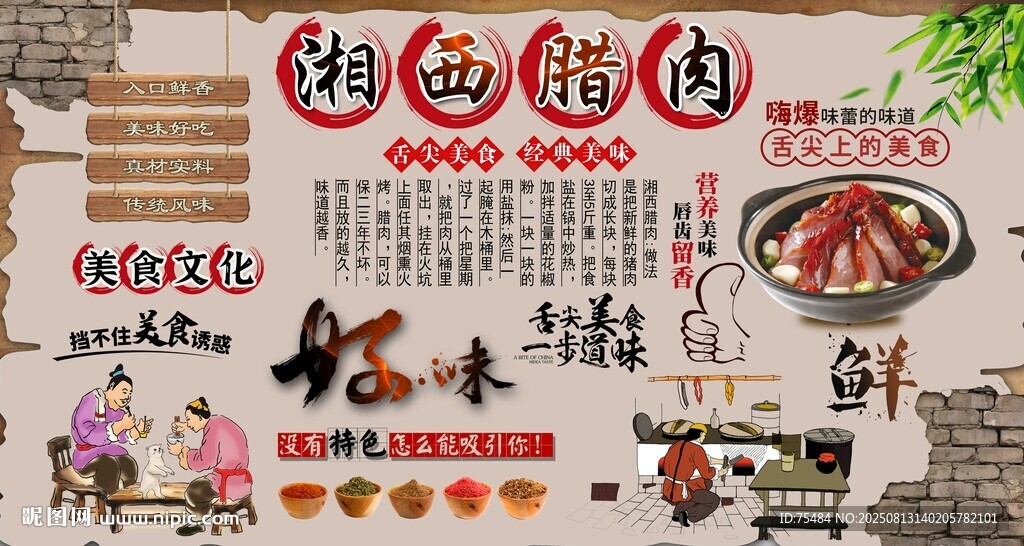 湘西腊肉
舌尖美食 经典美味
入口鲜香
美味好吃
真材实料
传统风味
美食文化
挡不住美食诱惑
湘西腊肉:做法
是把新鲜的猪肉
切成长块，每块
3斤到5斤重。把食
盐在锅中炒热，
加拌适量的花椒
粉。一块一块的
用盐抹:然后一
起腌在木桶里。
过了一个星期
，就把肉从桶里
取出，挂在火坑
上面任其烟熏火
烤。腊肉，可以
保二三年不坏。
而且放的越久，
味道越香。
嗨爆味蕾的味道
舌尖上的美食
营养美味
唇齿留香
好味
舌尖美食
一步道味
A BITE OF CHINA
鲜
没有特色怎么能吸引你！
昵图网 www.nipic.com
ID:75484 NO:20250813140205782101